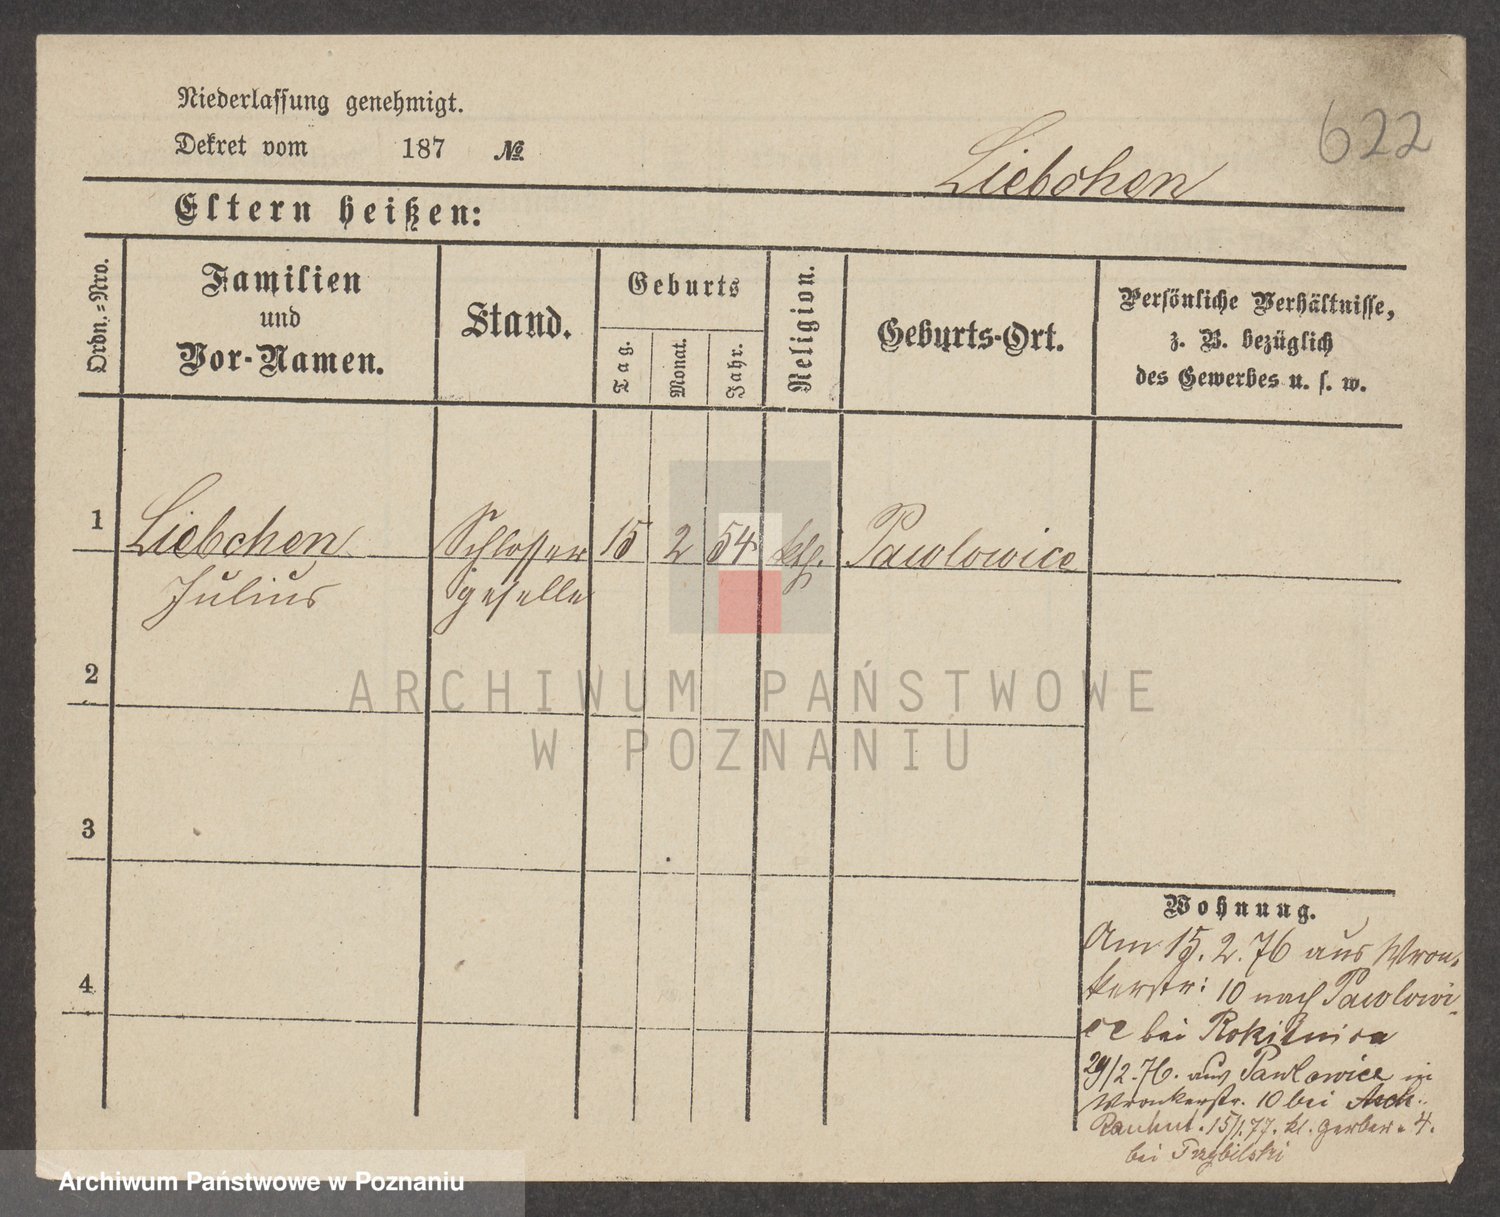 Niederlassung genehmigt.
Dekret vom 187 №
Liebchen
622
Eltern heißen:
Ordn.-Nro.
Familien
und
Vor-Namen.
Stand.
Geburts
Tag.
Monat.
Jahr.
Religion.
Geburts-Ort.
Persönliche Verhältnisse,
z. B. bezüglich
des Gewerbes u. s. w.
1 Liebchen Schlosser 15 2 54 kth. Pawlowice
Julius geselle
2
3
4
Wohnung.
Am 15. 2. 76 aus Wron-
kerstr: 10 nach Pawlowi-
ce bei Rokitnica
29/2. 76. aus Pawlowice in
Wronkerstr. 10 bei
Rauhut. 15/1. 77. kl. Gerber. 4.
bei Przybilski
ARCHIWUM PAŃSTWOWE
W POZNANIU
Archiwum Państwowe w Poznaniu